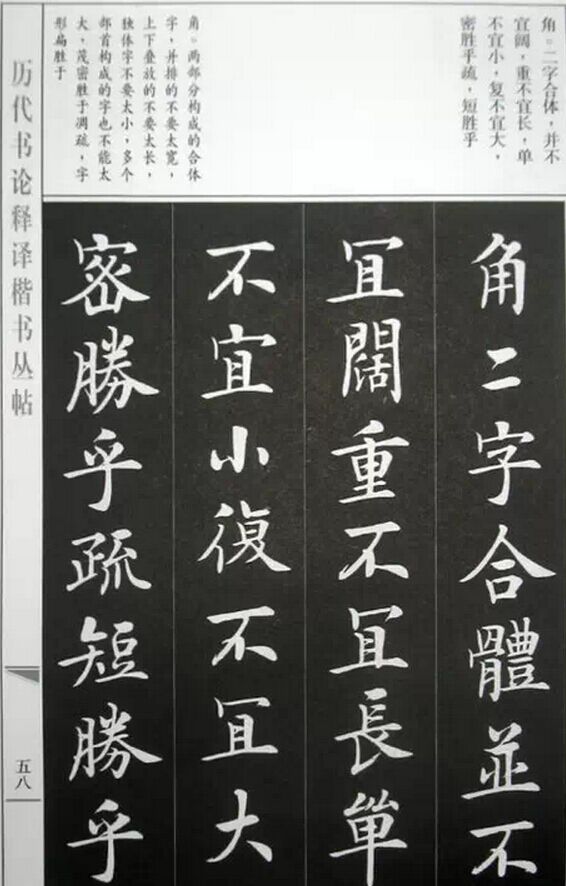 角。二字合体，并不
宜阔，重不宜长，单
不宜小，复不宜大，
密胜乎疏，短胜乎
角。两部分构成的合体
字，并排的不要太宽，
上下叠放的不要太长，
独体字不要太小，多个
部首构成的字也不能太
大，茂密胜于凋疏，字
形扁胜于
角二字合體並不
宜闊重不宜長單
不宜小復不宜大
密勝乎疏短勝乎
历代书论释译楷书丛帖
五八